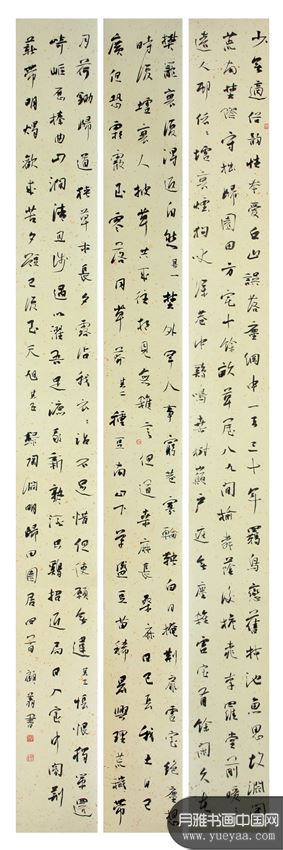 少無適俗韻性本愛丘山誤落塵網中一去三十年羈鳥戀舊林池魚思故淵開
荒南野際守拙歸園田方宅十餘畝草屋八九間榆柳蔭後簷桃李羅堂前曖
遠人邨依依墟里煙狗吠深巷中雞鳴桑樹巔戶庭無塵雜虛室有餘閒久在
樊籠裏復得返自然其一野外罕人事窮巷寡輪鞅白日掩荊扉虛室絕塵想
時復墟裏人披草共來往相見無雜言但道桑麻長桑麻日已長我土日已
廣但恐霜霰至零落同草莽其二種豆南山下草盛豆苗稀晨興理荒穢帶
月荷鋤歸道狹草木長夕露沾我衣衣沾不足惜但使願無違其三悵恨獨策還
崎嶇歷榛曲山澗清且淺遇以濯吾足漉我新熟酒隻雞招近局日入室中闇荊
薪代明燭歡來苦夕短已復至天旭其五錄陶淵明歸田園居四首 書
月雅书画中国网
www.yueyaa.com